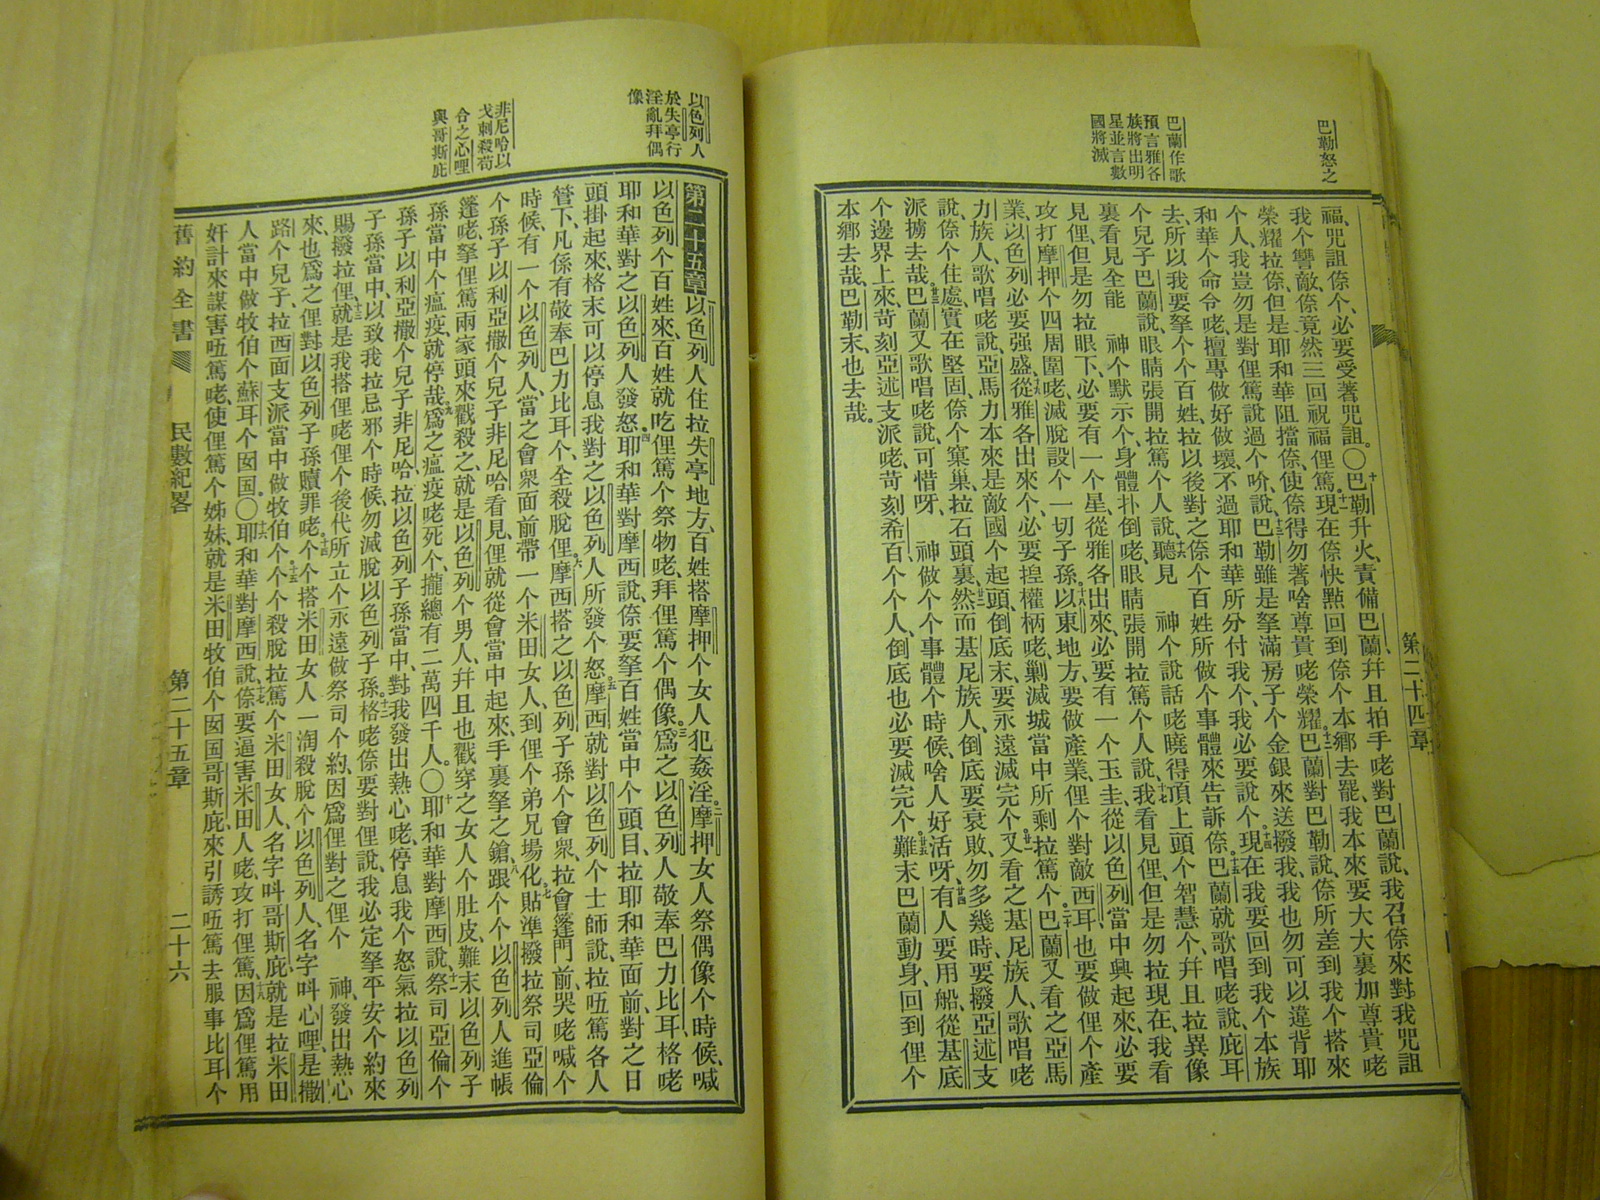 巴勒怒之
巴蘭作歌
預言雅各
族將出明
星並言數
國將滅
第二十四章
福、咒詛倷个、必要受著咒詛。〇巴勒升火、責備巴蘭、幷且拍手咾對巴蘭說、我召倷來對我咒詛
我个讐敵、倷竟然三回祝福俚篤、現在倷快點回到倷个本鄉去罷、我本來要大大裏加尊貴咾
榮耀拉倷、但是耶和華阻擋倷、使倷得勿著啥尊貴咾榮耀。巴蘭對巴勒說、倷所差到我个搭來
个人、我豈勿是對俚篤說過个吤、說巴勒雖是拏滿房子个金銀來送撥我、我也勿可以違背耶
和華个命令咾、壇專做好做壞、不過耶和華所分付我个、我必要說个、現在我要回到我个本族
去、所以我要拏个个百姓、拉以後對之倷个百姓所做个事體來告訴倷。巴蘭就歌唱咾說、庇耳
个兒子巴蘭說、眼睛張開拉篤个人說、聽見 神个說話咾曉得頂上頭个智慧个、幷且拉異像
裏看見全能 神个默示个、身體扑倒咾、眼睛張開拉篤个人說、我看見俚、但是勿拉現在、我看
見俚、但是勿拉眼下、必要有一个星、從雅各出來、必要有一个玉圭、從以色列當中興起來、必要
攻打摩押个四周圍咾、滅脫設个一切子孫、以東地方、要做產業、俚个對敵西耳、也要做俚个產
業、以色列必要强盛、從雅各出來个、必要揑權柄咾、剿滅城當中所剩拉篤个。巴蘭又看之亞馬
力族人、歌唱咾說、亞馬力本來是敵國个起頭、倒底末、要永遠滅完个。又看之基尼族人、歌唱咾
說、倷个住處實在堅固、倷个窠巢、拉石頭裏、然而基尼族人、倒底要衰敗、勿多幾時、要撥亞述支
派擄去哉。巴蘭又歌唱咾說、可惜呀、 神做个个事體个時候、啥人好活呀、有人要用船、從基底
个邊界上來、苛刻亞述支派咾、苛刻希百个个人、倒底也必要滅完个。難末巴蘭動身、回到俚个
本鄉去哉、巴勒末、也去哉。
以色列人
於失亭行
淫亂拜偶
像
非尼哈以
戈刺殺苟
合之心哩
與哥斯庇
第二十五章以色列人住拉失亭地方、百姓搭摩押个女人犯姦淫、摩押女人祭偶像个時候、喊
以色列个百姓來、百姓就吃俚篤个祭物咾、拜俚篤个偶像。爲之以色列人敬奉巴力比耳、格咾
耶和華對之以色列人發怒、耶和華對摩西說、倷要拏百姓當中个頭目、拉耶和華面前、對之日
頭掛起來、格末可以停息我對之以色列人所發个怒。摩西就對以色列个士師說、拉㕶篤各人
管下、凡係有敬奉巴力比耳个、全殺脫俚。摩西搭之以色列子孫个會衆、拉會篷門前哭咾喊个
時候、有一个以色列人、當之會衆面前、帶一个米田女人、到俚个弟兄場化、貼準撥拉祭司亞倫
个孫子、以利亞撒个兒子、非尼哈看見、俚就從會當中起來、手裏拏之鎗、跟个个以色列人進帳
篷咾、拏俚篤兩家頭來戳殺之、就是以色列个男人、幷且也戳穿之女人个肚皮、難末以色列子
孫當中个瘟疫、就停哉、爲之瘟疫咾死个、攏總有二萬四千人。〇耶和華對摩西說、祭司亞倫个
孫子、以利亞撒个兒子、非尼哈、拉以色列子孫當中、對我發出熱心咾、停息我个怒氣拉以色列
子孫當中、以致我拉忌邪个時候、勿滅脫以色列子孫。格咾倷要對俚說、我必定拏平安个約來
賜撥拉俚、就是我搭俚咾俚个後代、所立个永遠做祭司个約、因爲俚對之俚个 神、發出熱心
來、也爲之俚對以色列子孫贖罪咾。个个搭米田女人一淘殺脫个以色列人、名字呌心哩、是撒
路个兒子、拉西面支派當中做牧伯个。个个殺脫拉篤个米田女人、名字呌哥斯庇、就是拉米田
人當中做牧伯个蘇耳个囡囯。〇耶和華對摩西說、倷要逼害米田人咾、攻打俚篤、因爲俚篤用
奸計來謀害㕶篤咾、使俚篤个姊妹、就是米田牧伯个囡囯哥斯庇、來引誘㕶篤去服事比耳个
舊約全書 民數紀畧 第二十五章 二十六